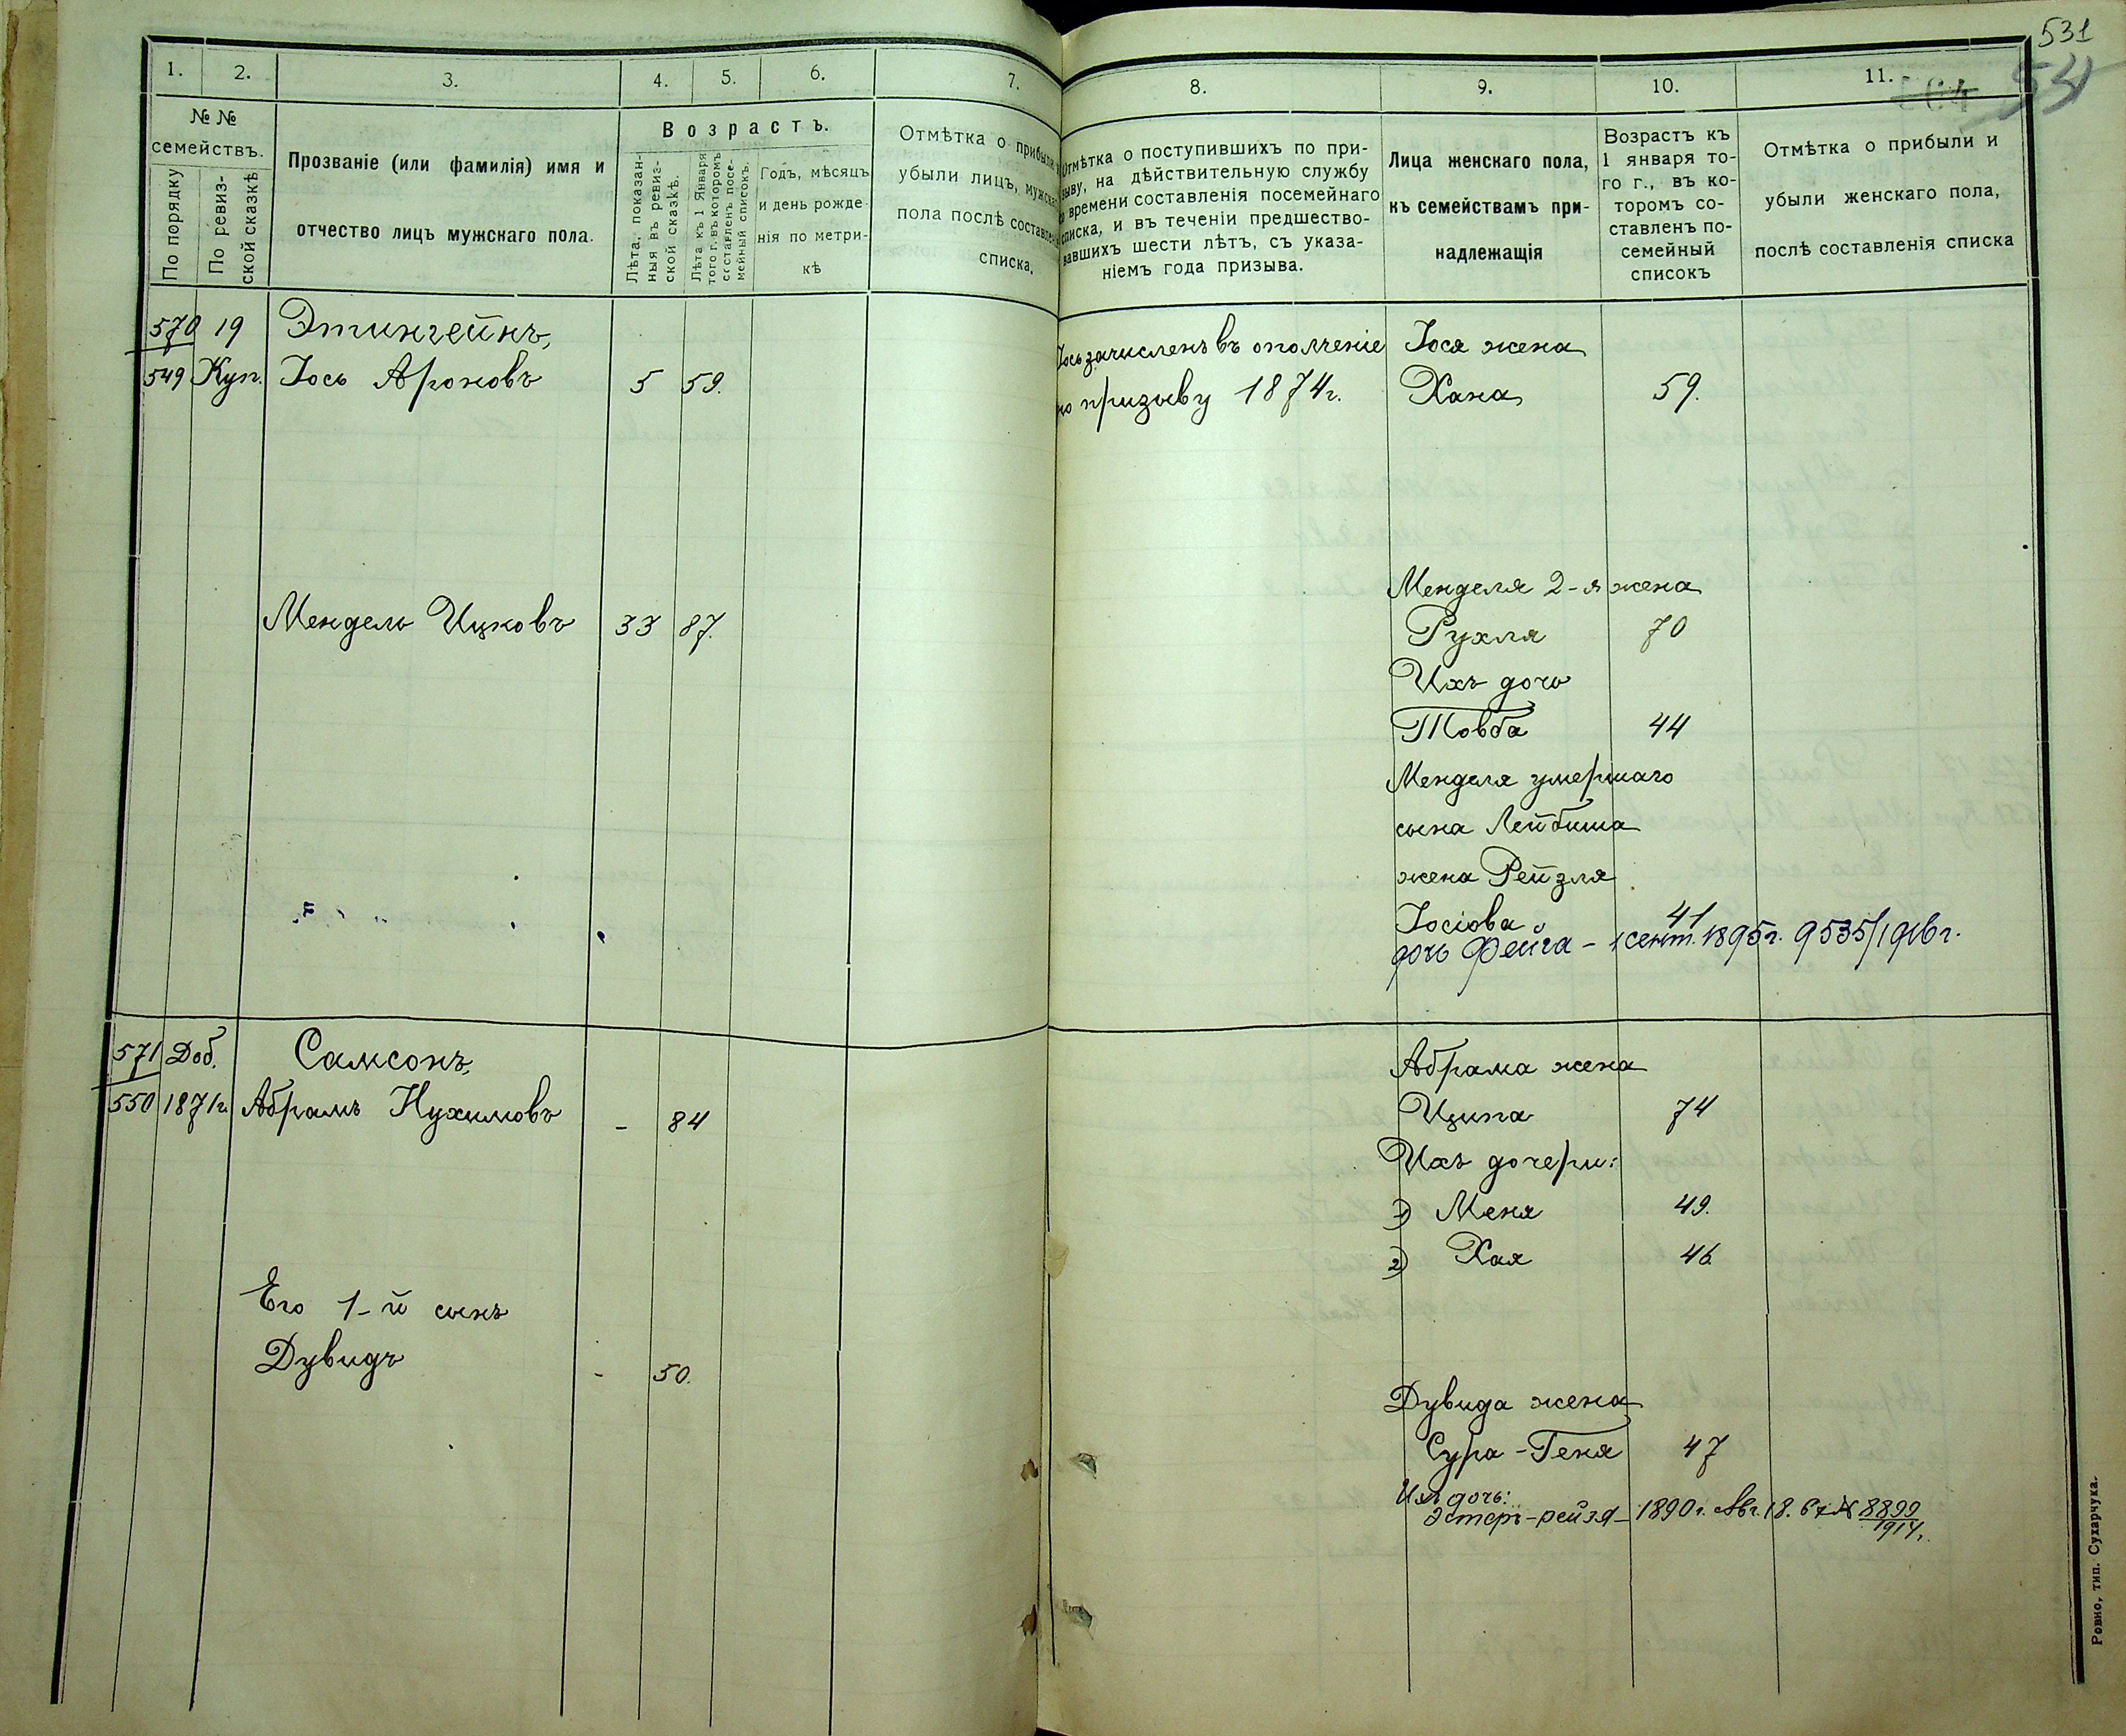 531
531
1.
2.
3.
4.
5.
6.
7.
8.
9.
10.
11.
№ №
семействъ.
По порядку
По ревиз-
ской сказкѣ
Прозваніе (или фамилія) имя и
отчество лицъ мужскаго пола.
Возрастъ.
Лѣта, показан-
ныя въ ревиз-
ской сказкѣ.
Лѣта къ 1 Января
того г. въ которомъ
составленъ посе-
мейный списокъ.
Годъ, мѣсяцъ
и день рожде-
нія по метри-
кѣ
Отмѣтка о прибыли
убыли лицъ, мужска
пола послѣ составле
списка.
Отмѣтка о поступившихъ по при-
зыву, на дѣйствительную службу
времени составленія посемейнаго
списка, и въ теченіи предшество-
вавшихъ шести лѣтъ, съ указа-
ніемъ года призыва.
Лица женскаго пола,
къ семействамъ при-
надлежащія
Возрастъ къ
1 января то-
го г., въ ко-
торомъ со-
ставленъ по-
семейный
списокъ
Отмѣтка о прибыли и
убыли женскаго пола,
послѣ составленія списка
570 19 Этингейнъ,
549 Куп. Іось Ароновъ 5 59.
Іось зачисленъ въ ополченіе
по призыву 1874г.
Іося жена
Хана 59.
Мендель Ицковъ 33 87.
Менделя 2-я жена
Рухля 70
Ихъ дочь
Товба 44
Менделя умершаго
сына Лейбиша
жена Рейзля
Іосіова 41
дочь Фейга - 1 сент. 1895г. 9535/1916г.
571 Доб. Самсонъ,
550 1871г. Абрамъ Нухимовъ - 84
Абрама жена
Ципа 74
Ихъ дочери:
1) Меня 49.
2) Хая 46
Его 1-й сынъ
Дувидъ - 50.
Дувида жена
Сура-Геня 47
Ихъ дочь:
Эстеръ-рейзя - 1890г. Авг. 18. № 8899
1914г.
Ровно, тип. Сухарчука.